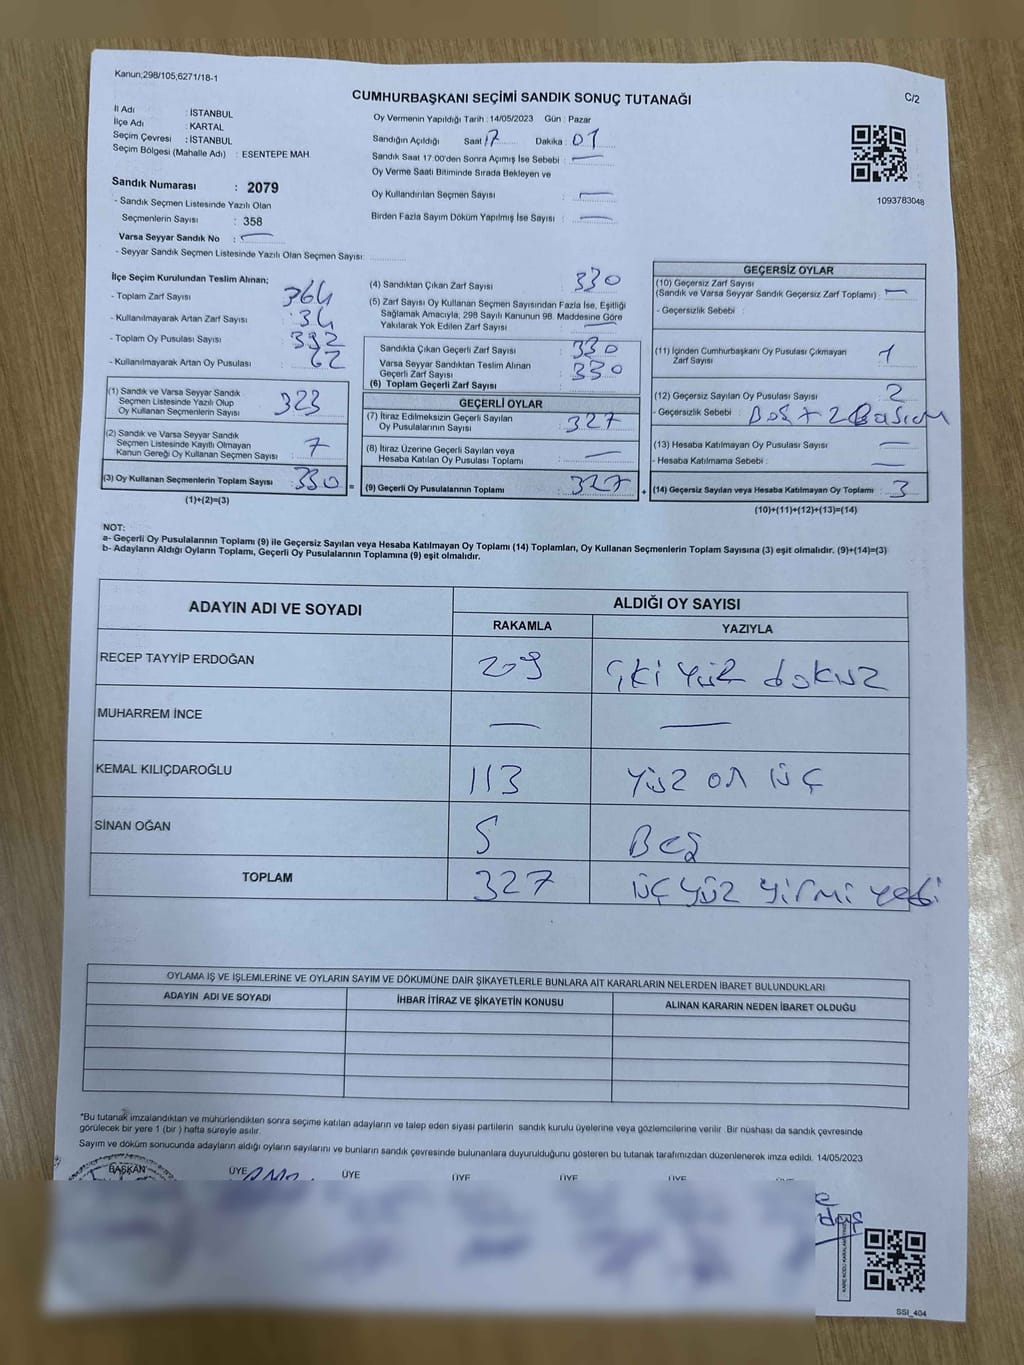 Kanun;298/105,6271/18-1
CUMHURBAŞKANI SEÇİMİ SANDIK SONUÇ TUTANAĞI
C/2
İl Adı : İSTANBUL
İlçe Adı : KARTAL
Seçim Çevresi : İSTANBUL
Seçim Bölgesi (Mahalle Adı) : ESENTEPE MAH.
Sandık Numarası : 2079
- Sandık Seçmen Listesinde Yazılı Olan
Seçmenlerin Sayısı : 358
Varsa Seyyar Sandık No : —
- Seyyar Sandık Seçmen Listesinde Yazılı Olan Seçmen Sayısı:
Oy Vermenin Yapıldığı Tarih : 14/05/2023 Gün : Pazar
Sandığın Açıldığı Saat 17 Dakika : 01
Sandık Saat 17.00'den Sonra Açımış İse Sebebi : —
Oy Verme Saati Bitiminde Sırada Bekleyen ve
Oy Kullandırılan Seçmen Sayısı : —
Birden Fazla Sayım Döküm Yapılmış İse Sayısı : —
1093783048
İlçe Seçim Kurulundan Teslim Alınan;
- Toplam Zarf Sayısı : 364
- Kullanılmayarak Artan Zarf Sayısı : 34
- Toplam Oy Pusulası Sayısı : 392
- Kullanılmayarak Artan Oy Pusulası : 62
(1) Sandık ve Varsa Seyyar Sandık
Seçmen Listesinde Yazılı Olup
Oy Kullanan Seçmenlerin Sayısı : 323
(2) Sandık ve Varsa Seyyar Sandık
Seçmen Listesinde Kayıtlı Olmayan
Kanun Gereği Oy Kullanan Seçmen Sayısı : 7
(3) Oy Kullanan Seçmenlerin Toplam Sayısı : 330 =
(1)+(2)=(3)
(4) Sandıktan Çıkan Zarf Sayısı : 330
(5) Zarf Sayısı Oy Kullanan Seçmen Sayısından Fazla İse, Eşitliği
Sağlamak Amacıyla, 298 Sayılı Kanunun 98. Maddesine Göre
Yakılarak Yok Edilen Zarf Sayısı : —
Sandıkta Çıkan Geçerli Zarf Sayısı : 330
Varsa Seyyar Sandıktan Teslim Alınan
Geçerli Zarf Sayısı :
(6) Toplam Geçerli Zarf Sayısı 330
GEÇERLİ OYLAR
(7) İtiraz Edilmeksizin Geçerli Sayılan
Oy Pusulalarının Sayısı : 327
(8) İtiraz Üzerine Geçerli Sayılan veya
Hesaba Katılan Oy Pusulası Toplamı : —
(9) Geçerli Oy Pusulalarının Toplamı : 327 +
GEÇERSİZ OYLAR
(10) Geçersiz Zarf Sayısı
(Sandık ve Varsa Seyyar Sandık Geçersiz Zarf Toplamı) : —
- Geçersizlik Sebebi :
(11) İçinden Cumhurbaşkanı Oy Pusulası Çıkmayan
Zarf Sayısı : 1
(12) Geçersiz Sayılan Oy Pusulası Sayısı : 2
- Geçersizlik Sebebi : Boş + 2
(13) Hesaba Katılmayan Oy Pusulası Sayısı : —
- Hesaba Katılmama Sebebi : —
(14) Geçersiz Sayılan veya Hesaba Katılmayan Oy Toplamı : 3
(10)+(11)+(12)+(13)=(14)
NOT:
a- Geçerli Oy Pusulalarının Toplamı (9) ile Geçersiz Sayılan veya Hesaba Katılmayan Oy Toplamı (14) Toplamları, Oy Kullanan Seçmenlerin Toplam Sayısına (3) eşit olmalıdır. (9)+(14)=(3)
b- Adayların Aldığı Oyların Toplamı, Geçerli Oy Pusulalarının Toplamına (9) eşit olmalıdır.
ADAYIN ADI VE SOYADI
ALDIĞI OY SAYISI
RAKAMLA YAZIYLA
RECEP TAYYİP ERDOĞAN 209 iki yüz dokuz
MUHARREM İNCE — —
KEMAL KILIÇDAROĞLU 113 yüz on üç
SİNAN OĞAN 5 Beş
TOPLAM 327 üç yüz yirmi yedi
OYLAMA İŞ VE İŞLEMLERİNE VE OYLARIN SAYIM VE DÖKÜMÜNE DAİR ŞİKAYETLERLE BUNLARA AİT KARARLARIN NELERDEN İBARET BULUNDUKLARI
ADAYIN ADI VE SOYADI İHBAR İTİRAZ VE ŞİKAYETİN KONUSU ALINAN KARARIN NEDEN İBARET OLDUĞU
*Bu tutanak imzalandıktan ve mühürlendikten sonra seçime katılan adayların ve talep eden siyasi partilerin sandık kurulu üyelerine veya gözlemcilerine verilir. Bir nüshası da sandık çevresinde
görülecek bir yere 1 (bir ) hafta süreyle asılır.
Sayım ve döküm sonucunda adayların aldığı oyların sayılarını ve bunların sandık çevresinde bulunanlara duyurulduğunu gösteren bu tutanak tarafımızdan düzenlenerek imza edildi. 14/05/2023
BAŞKAN ÜYE ÜYE ÜYE ÜYE ÜYE
SSI_404